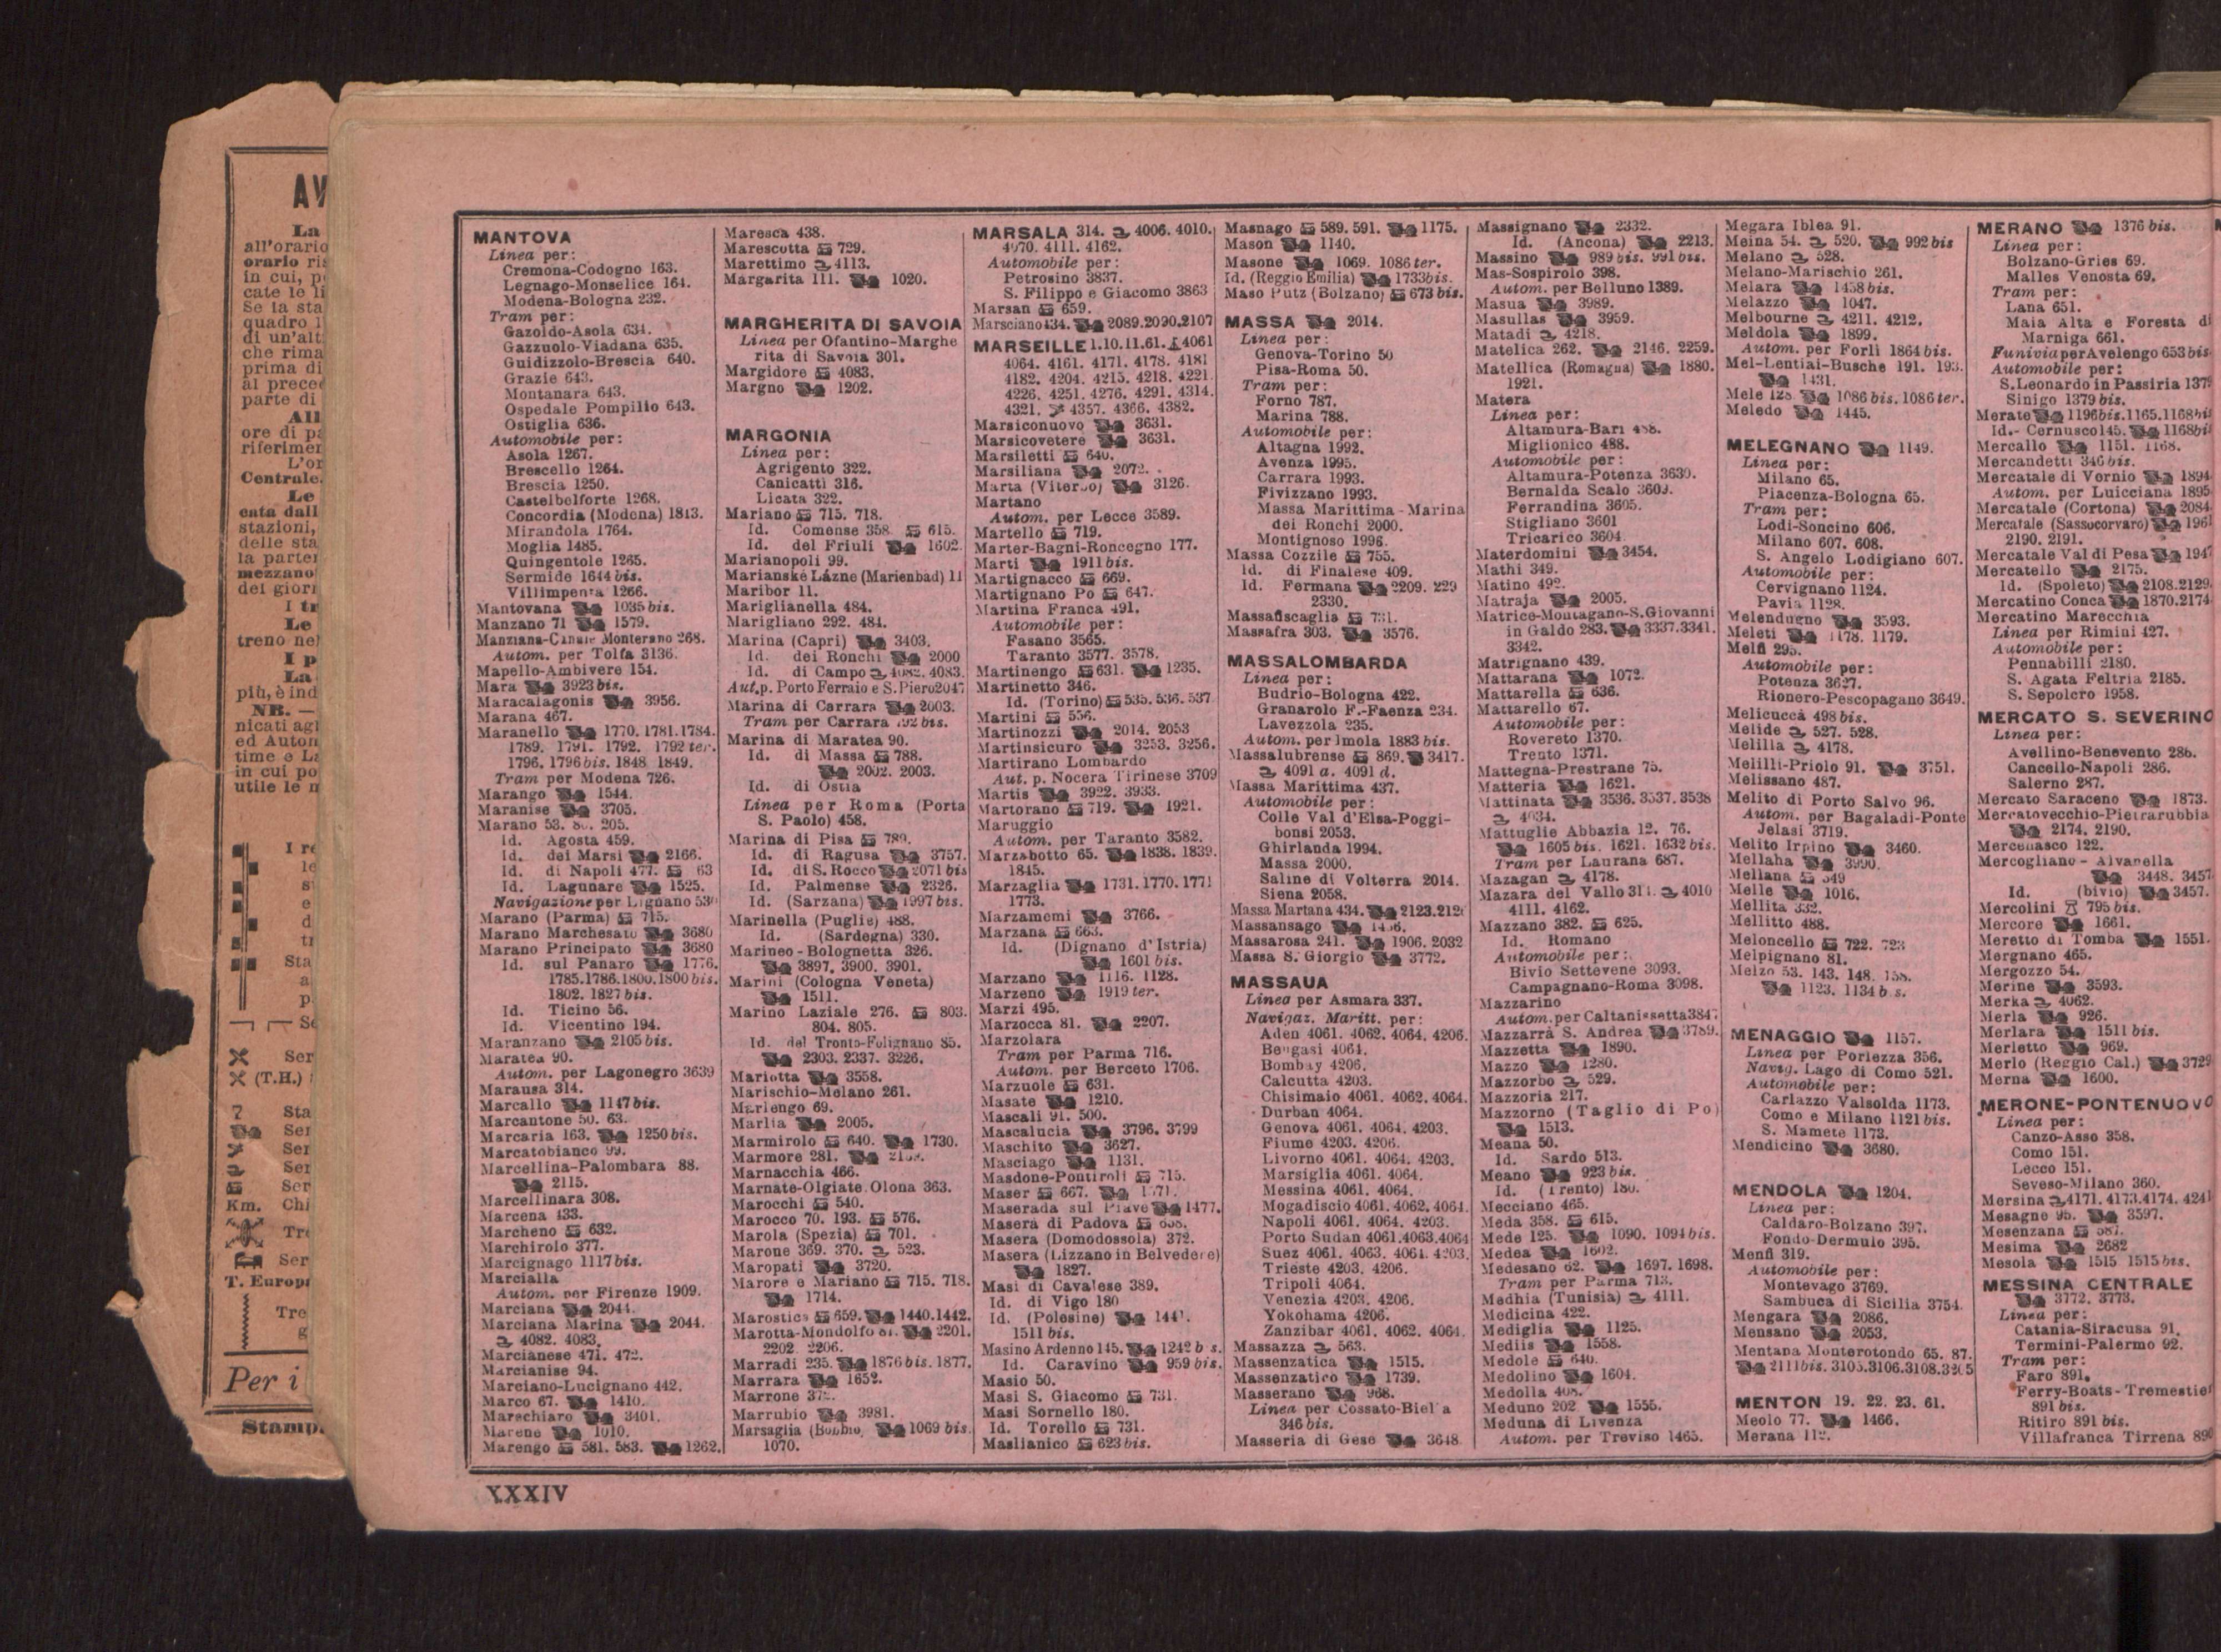 AV
La
all'orario
orario ris
in cui, p
cate le li
Se la sta
quadro 1
di un'alt
che rima
prima di
al prece
parte di
All
ore di pa
riferimen
L'or
Centrale.
Le
cata dall
stazioni,
delle sta
la parten
mezzano
dei giorn
I tr
Le
treno nel
I p
La
più, è ind
NB. —
nicati agl
ed Auton
time e La
in cui po
utile le n
I re
le
Sta
Ser
(T.H.)
Sta
Ser
Ser
Ser
Ser
Km. Chi
Tre
Ser
T. Europ
Tre
g
Per i
Stamp
MANTOVA
Linea per:
Cremona-Codogno 163.
Legnago-Monselice 164.
Modena-Bologna 232.
Tram per:
Gazoldo-Asola 634.
Gazzuolo-Viadana 635.
Guidizzolo-Brescia 640.
Grazie 643.
Montanara 643.
Ospedale Pompilio 643.
Ostiglia 636.
Automobile per:
Asola 1267.
Brescello 1264.
Brescia 1250.
Castelbelforte 1268.
Concordia (Modena) 1813.
Mirandola 1764.
Moglia 1485.
Quingentole 1265.
Sermide 1644 bis.
Villimpenta 1266.
Mantovana 1035 bis.
Manzano 71 1579.
Manziana-Canale Monterano 268.
Autom. per Tolfa 3136.
Mapello-Ambivere 154.
Mara 3923 bis.
Maracalagonis 3956.
Marana 467.
Maranello 1770. 1781. 1784.
1789. 1791. 1792. 1792 ter.
1796. 1796 bis. 1848 1849.
Tram per Modena 726.
Marango 1544.
Maranise 3705.
Marano 53. 205.
Id. Agosta 459.
Id. dei Marsi 2166.
Id. di Napoli 477. 63
Id. Lagunare 1525.
Navigazione per Lignano
Marano (Parma) 715.
Marano Marchesato 3680
Marano Principato 3680
Id. sul Panaro 1776.
1785. 1786. 1800. 1800 bis.
1802. 1827 bis.
Id. Ticino 56.
Id. Vicentino 194.
Maranzano 2105 bis.
Maratea 90.
Autom. per Lagonegro 3639
Marausa 314.
Marcallo 1147 bis.
Marcantone 50. 63.
Marcaria 163. 1250 bis.
Marcatobianco 99.
Marcellina-Palombara 88.
2115.
Marcellinara 308.
Marcena 433.
Marcheno 632.
Marchirolo 377.
Marcignago 1117 bis.
Marcialla
Autom. per Firenze 1909.
Marciana 2044.
Marciana Marina 2044.
4082. 4083.
Marcianese 471. 472.
Marcianise 94.
Marciano-Lucignano 442.
Marco 67. 1410.
Marechiaro 3401.
Marene 1010.
Marengo 581. 583. 1262.
Maresca 438.
Marescotta 729.
Marettimo 4113.
Margarita 111. 1020.
MARGHERITA DI SAVOIA
Linea per Ofantino-Marghe
rita di Savoia 301.
Margidore 4083.
Margno 1202.
MARGONIA
Linea per:
Agrigento 322.
Canicattì 316.
Licata 322.
Mariano 715. 718.
Id. Comense 358 615.
Id. del Friuli 1602.
Marianopoli 99.
Marianské Lázne (Marienbad) 11
Maribor 11.
Mariglianella 484.
Marigliano 292. 484.
Marina (Capri) 3403.
Id. dei Ronchi 2000
Id. di Campo 4082. 4083.
Aut. p. Porto Ferraio e S. Piero 2047
Marina di Carrara 2003.
Tram per Carrara 792 bis.
Marina di Maratea 90.
Id. di Massa 788.
2002. 2003.
Id. di Ostia
Linea per Roma (Porta
S. Paolo) 458.
Marina di Pisa 789.
Id. di Ragusa 3757.
Id. di S. Rocco 2071 bis
Id. Palmense 2326.
Id. (Sarzana) 1997 bis.
Marinella (Puglie) 488.
Id. (Sardegna) 330.
Marineo-Bolognetta 326.
3897. 3900. 3901.
Marini (Cologna Veneta)
1511.
Marino Laziale 276. 803.
804. 805.
Id. del Tronto-Folignano 85.
2303. 2337. 3226.
Mariotta 3558.
Marischio-Melano 261.
Marlengo 69.
Marlia 2005.
Marmirolo 640. 1730.
Marmore 281.
Marnacchia 466.
Marnate-Olgiate Olona 363.
Marocchi 540.
Marocco 70. 193. 576.
Marola (Spezia) 701.
Marone 369. 370. 523.
Maropati 3720.
Marore e Mariano 715. 718.
1714.
Marostica 659. 1440. 1442.
Marotta-Mondolfo 81. 2201.
2202 2206.
Marradi 235. 1876 bis. 1877.
Marrara 1652.
Marrone
Marrubio 3981.
Marsaglia (Bobbio) 1069 bis.
1070.
MARSALA 314. 4006. 4010.
4070. 4111. 4162.
Automobile per:
Petrosino 3837.
S. Filippo e Giacomo 3863
Marsan 659.
Marsciano 434. 2089. 2090. 2107
MARSEILLE 1. 10. 11. 61. 4061
4064. 4161. 4171. 4178. 4181
4182. 4204. 4215. 4218. 4221.
4226. 4251. 4276. 4291. 4314.
4321. 4357. 4366. 4382.
Marsiconuovo 3631.
Marsicovetere 3631.
Marsiletti 640.
Marsiliana 2072.
Marta (Viterbo) 3126.
Martano
Autom. per Lecce 3589.
Martello 719.
Marter-Bagni-Roncegno 177.
Marti 1911 bis.
Martignacco 669.
Martignano Po 647.
Martina Franca 491.
Automobile per:
Fasano 3565.
Taranto 3577. 3578.
Martinengo 631. 1235.
Martinetto 346.
Id. (Torino) 535. 536. 537
Martini 556.
Martinozzi 2014. 2053
Martinsicuro 3253. 3256.
Martirano Lombardo
Aut. p. Nocera Tirinese 3709
Martis 3922. 3933.
Martorano 719. 1921.
Maruggio
Autom. per Taranto 3582.
Marzabotto 65. 1838. 1839.
1845.
Marzaglia 1731. 1770. 1771
1773.
Marzamemi 3766.
Marzana 663.
Id. (Dignano d'Istria)
1601 bis.
Marzano 1116. 1128.
Marzeno 1919 ter.
Marzi 495.
Marzocca 81. 2207.
Marzolara
Tram per Parma 716.
Autom. per Berceto 1706.
Marzuole 631.
Masate 1210.
Mascali 91. 500.
Mascalucia 3796. 3799
Maschito 3627.
Masciago 1131.
Masdone-Pontiroli 715.
Maser 667. 1571.
Maserada sul Piave 1477.
Maserà di Padova
Masera (Domodossola) 372.
Masera (Lizzano in Belvedere)
1827.
Masi di Cavalese 389.
Id. di Vigo 180
Id. (Polesine) 1441.
1511 bis.
Masino Ardenno 145. 1242 bis.
Id. Caravino 959 bis.
Masio 50.
Masi S. Giacomo 731.
Masi Sornello 180.
Id. Torello 731.
Maslianico 623 bis.
Masnago 589. 591. 1175.
Mason 1140.
Masone 1069. 1086 ter.
Id. (Reggio Emilia) 1733 bis.
Maso Putz (Bolzano) 673 bis.
MASSA 2014.
Linea per:
Genova-Torino 50
Pisa-Roma 50.
Tram per:
Forno 787.
Marina 788.
Automobile per:
Altagna 1992.
Avenza 1995.
Carrara 1993.
Fivizzano 1993.
Massa Marittima-Marina
dei Ronchi 2000.
Montignoso 1996.
Massa Cozzile 755.
Id. di Finalese 409.
Id. Fermana 2209. 229
2330.
Massafiscaglia 731.
Massafra 303. 3576.
MASSALOMBARDA
Linea per:
Budrio-Bologna 422.
Granarolo F.-Faenza 234.
Lavezzola 235.
Autom. per Imola 1883 bis.
Massalubrense 869. 3417.
4091 a. 4091 d.
Massa Marittima 437.
Automobile per:
Colle Val d'Elsa-Poggi-
bonsi 2053.
Ghirlanda 1994.
Massa 2000.
Saline di Volterra 2014.
Siena 2058.
Massa Martana 434. 2123. 212
Massansago
Massarosa 241. 1906. 2032
Massa S. Giorgio 3772.
MASSAUA
Linea per Asmara 337.
Navigaz. Maritt. per:
Aden 4061. 4062. 4064. 4206.
Bengasi 4064.
Bombay 4206.
Calcutta 4203.
Chisimaio 4061. 4062. 4064.
Durban 4064.
Genova 4061. 4064. 4203.
Fiume 4203. 4206.
Livorno 4061. 4064. 4203.
Marsiglia 4061. 4064.
Messina 4061. 4064.
Mogadiscio 4061. 4062. 4064.
Napoli 4061. 4064. 4203.
Porto Sudan 4061. 4063. 4064
Suez 4061. 4063. 4064. 4203.
Trieste 4203. 4206.
Tripoli 4064.
Venezia 4203. 4206.
Yokohama 4206.
Zanzibar 4061. 4062. 4064.
Massazza 563.
Massenzatica 1515.
Massenzatico 1739.
Masserano 968.
Linea per Cossato-Biella
346 bis.
Masseria di Gese 3648
Massignano 2332.
Id. (Ancona) 2213.
Massino 989 bis. 991 bis.
Mas-Sospirolo 398.
Autom. per Belluno 1389.
Masua 3989.
Masullas 3959.
Matadi 4218.
Matelica 262. 2146. 2259.
Matellica (Romagna) 1880.
1921.
Matera
Linea per:
Altamura-Bari 488.
Miglionico 488.
Automobile per:
Altamura-Potenza 3630.
Bernalda Scalo 3609.
Ferrandina 3605.
Stigliano 3601
Tricarico 3604.
Materdomini 3454.
Mathi 349.
Matino 492.
Matraja 2005.
Matrice-Montagano-S. Giovanni
in Galdo 283. 3337. 3341.
3342.
Matrignano 439.
Mattarana 1072.
Mattarella 636.
Mattarello 67.
Automobile per:
Rovereto 1370.
Trento 1371.
Mattegna-Prestrane 75.
Matteria 1621.
Mattinata 3536. 3537. 3538
4034.
Mattuglie Abbazia 12. 76.
1605 bis. 1621. 1632 bis.
Tram per Laurana 687.
Mazagan 4178.
Mazara del Vallo 314. 4010
4111. 4162.
Mazzano 382. 625.
Id. Romano
Automobile per:
Bivio Settevene 3093.
Campagnano-Roma 3098.
Mazzarino
Autom. per Caltanissetta 3847
Mazzarrà S. Andrea 3789.
Mazzetta 1890.
Mazzo 1280.
Mazzorbo 529.
Mazzoria 217.
Mazzorno (Taglio di Po)
1513.
Meana 50.
Id. Sardo 513.
Meano 923 bis.
Id. (Trento) 180.
Mecciano 465.
Meda 358. 615.
Mede 125. 1090. 1094 bis.
Medea 1602.
Medesano 62. 1697. 1698.
Tram per Parma 713.
Medhia (Tunisia) 4111.
Medicina 422.
Mediglia 1125.
Mediis 1558.
Medole 640.
Medolino 1604.
Medolla 408.
Meduno 202 1555.
Meduna di Livenza
Autom. per Treviso 1465.
Megara Iblea 91.
Meina 54. 520. 992 bis
Melano 528.
Melano-Marischio 261.
Melara 1458 bis.
Melazzo 1047.
Melbourne 4211. 4212.
Meldola 1899.
Autom. per Forlì 1864 bis.
Mel-Lentiai-Busche 191. 193.
1431.
Mele 128. 1086 bis. 1086 ter.
Meledo 1445.
MELEGNANO 1149.
Linea per:
Milano 65.
Piacenza-Bologna 65.
Tram per:
Lodi-Soncino 606.
Milano 607. 608.
S. Angelo Lodigiano 607.
Automobile per:
Cervignano 1124.
Pavia 1128.
Melendugno 3593.
Meleti 1178. 1179.
Melfi 295.
Automobile per:
Potenza 3627.
Rionero-Pescopagano 3649.
Melicuccà 498 bis.
Melide 527. 528.
Melilla 4178.
Melilli-Priolo 91. 3751.
Melissano 487.
Melito di Porto Salvo 96.
Autom. per Bagaladi-Ponte
Jelasi 3719.
Melito Irpino 3460.
Mellaha 3990.
Mellana 549
Melle 1016.
Mellita 332.
Mellitto 488.
Meloncello 722. 723
Melpignano 81.
Melzo 53. 143. 148. 158.
1123. 1134 bis.
MENAGGIO 1157.
Linea per Porlezza 356.
Navig. Lago di Como 521.
Automobile per:
Carlazzo Valsolda 1173.
Como e Milano 1121 bis.
S. Mamete 1173.
Mendicino 3680.
MENDOLA 1204.
Linea per:
Caldaro-Bolzano 397.
Fondo-Dermulo 395.
Menfi 319.
Automobile per:
Montevago 3769.
Sambuca di Sicilia 3754.
Mengara 2086.
Mensano 2053.
Mentana Monterotondo 65. 87.
2111 bis. 3105. 3106. 3108. 3205
MENTON 19. 22. 23. 61.
Meolo 77. 1466.
Merana 112.
MERANO 1376 bis.
Linea per:
Bolzano-Gries 69.
Malles Venosta 69.
Tram per:
Lana 651.
Maia Alta e Foresta di
Marniga 661.
Funivia per Avelengo 653 bis
Automobile per:
S. Leonardo in Passiria 137
Sinigo 1379 bis.
Merate 1196 bis. 1165. 1168 bis
Id.- Cernusco 145. 1168 bi
Mercallo 1151. 1168.
Mercandetti 346 bis.
Mercatale di Vernio 1894
Autom. per Luicciana 1895
Mercatale (Cortona) 2084
Mercatale (Sassocorvaro) 196
2190. 2191.
Mercatale Val di Pesa 194
Mercatello 2175.
Id. (Spoleto) 2108. 2129
Mercatino Conca 1870. 2174
Mercatino Marecchia
Linea per Rimini 427.
Automobile per:
Pennabilli 2180.
S. Agata Feltria 2185.
S. Sepolcro 1958.
MERCATO S. SEVERINO
Linea per:
Avellino-Benevento 286.
Cancello-Napoli 286.
Salerno 287.
Mercato Saraceno 1873.
Mercatovecchio-Pietrarubbia
2174. 2190.
Mercenasco 122.
Mercogliano-Alvanella
3448. 3457
Id. (bivio) 3457.
Mercolini 795 bis.
Mercore 1661.
Meretto di Tomba 1551.
Mergnano 465.
Mergozzo 54.
Merine 3593.
Merka 4062.
Merla 926.
Merlara 1511 bis.
Merletto 969.
Merlo (Reggio Cal.) 3729
Merna 1600.
MERONE-PONTENUOVO
Linea per:
Canzo-Asso 358.
Como 151.
Lecco 151.
Seveso-Milano 360.
Mersina 4171. 4173. 4174. 4241
Mesagne 95. 3597.
Mesenzana 587.
Mesima 2682
Mesola 1515 1515 bis.
MESSINA CENTRALE
3772. 3773.
Linea per:
Catania-Siracusa 91.
Termini-Palermo 92.
Tram per:
Faro 891.
Ferry-Boats-Tremestier
891 bis.
Ritiro 891 bis.
Villafranca Tirrena 890
XXXIV